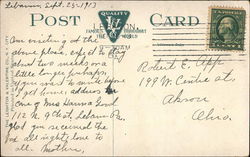 Lebanon, Sept. 23-1913
POST CARD
QUALITY
FAMOUS THROUGHOUT
THE WORLD
Am visiting at the
above place, expect to stay
about two weeks or a
little longer perhaps.
If you want to write before
I get home, address in
care of Mrs Hanna Lond
112 N. 9 that, Lebanon Pa.
glad you received the
all right, love to
all. Mother,
Robert E. App
198 W. Centre st,
Akron
Ohio.